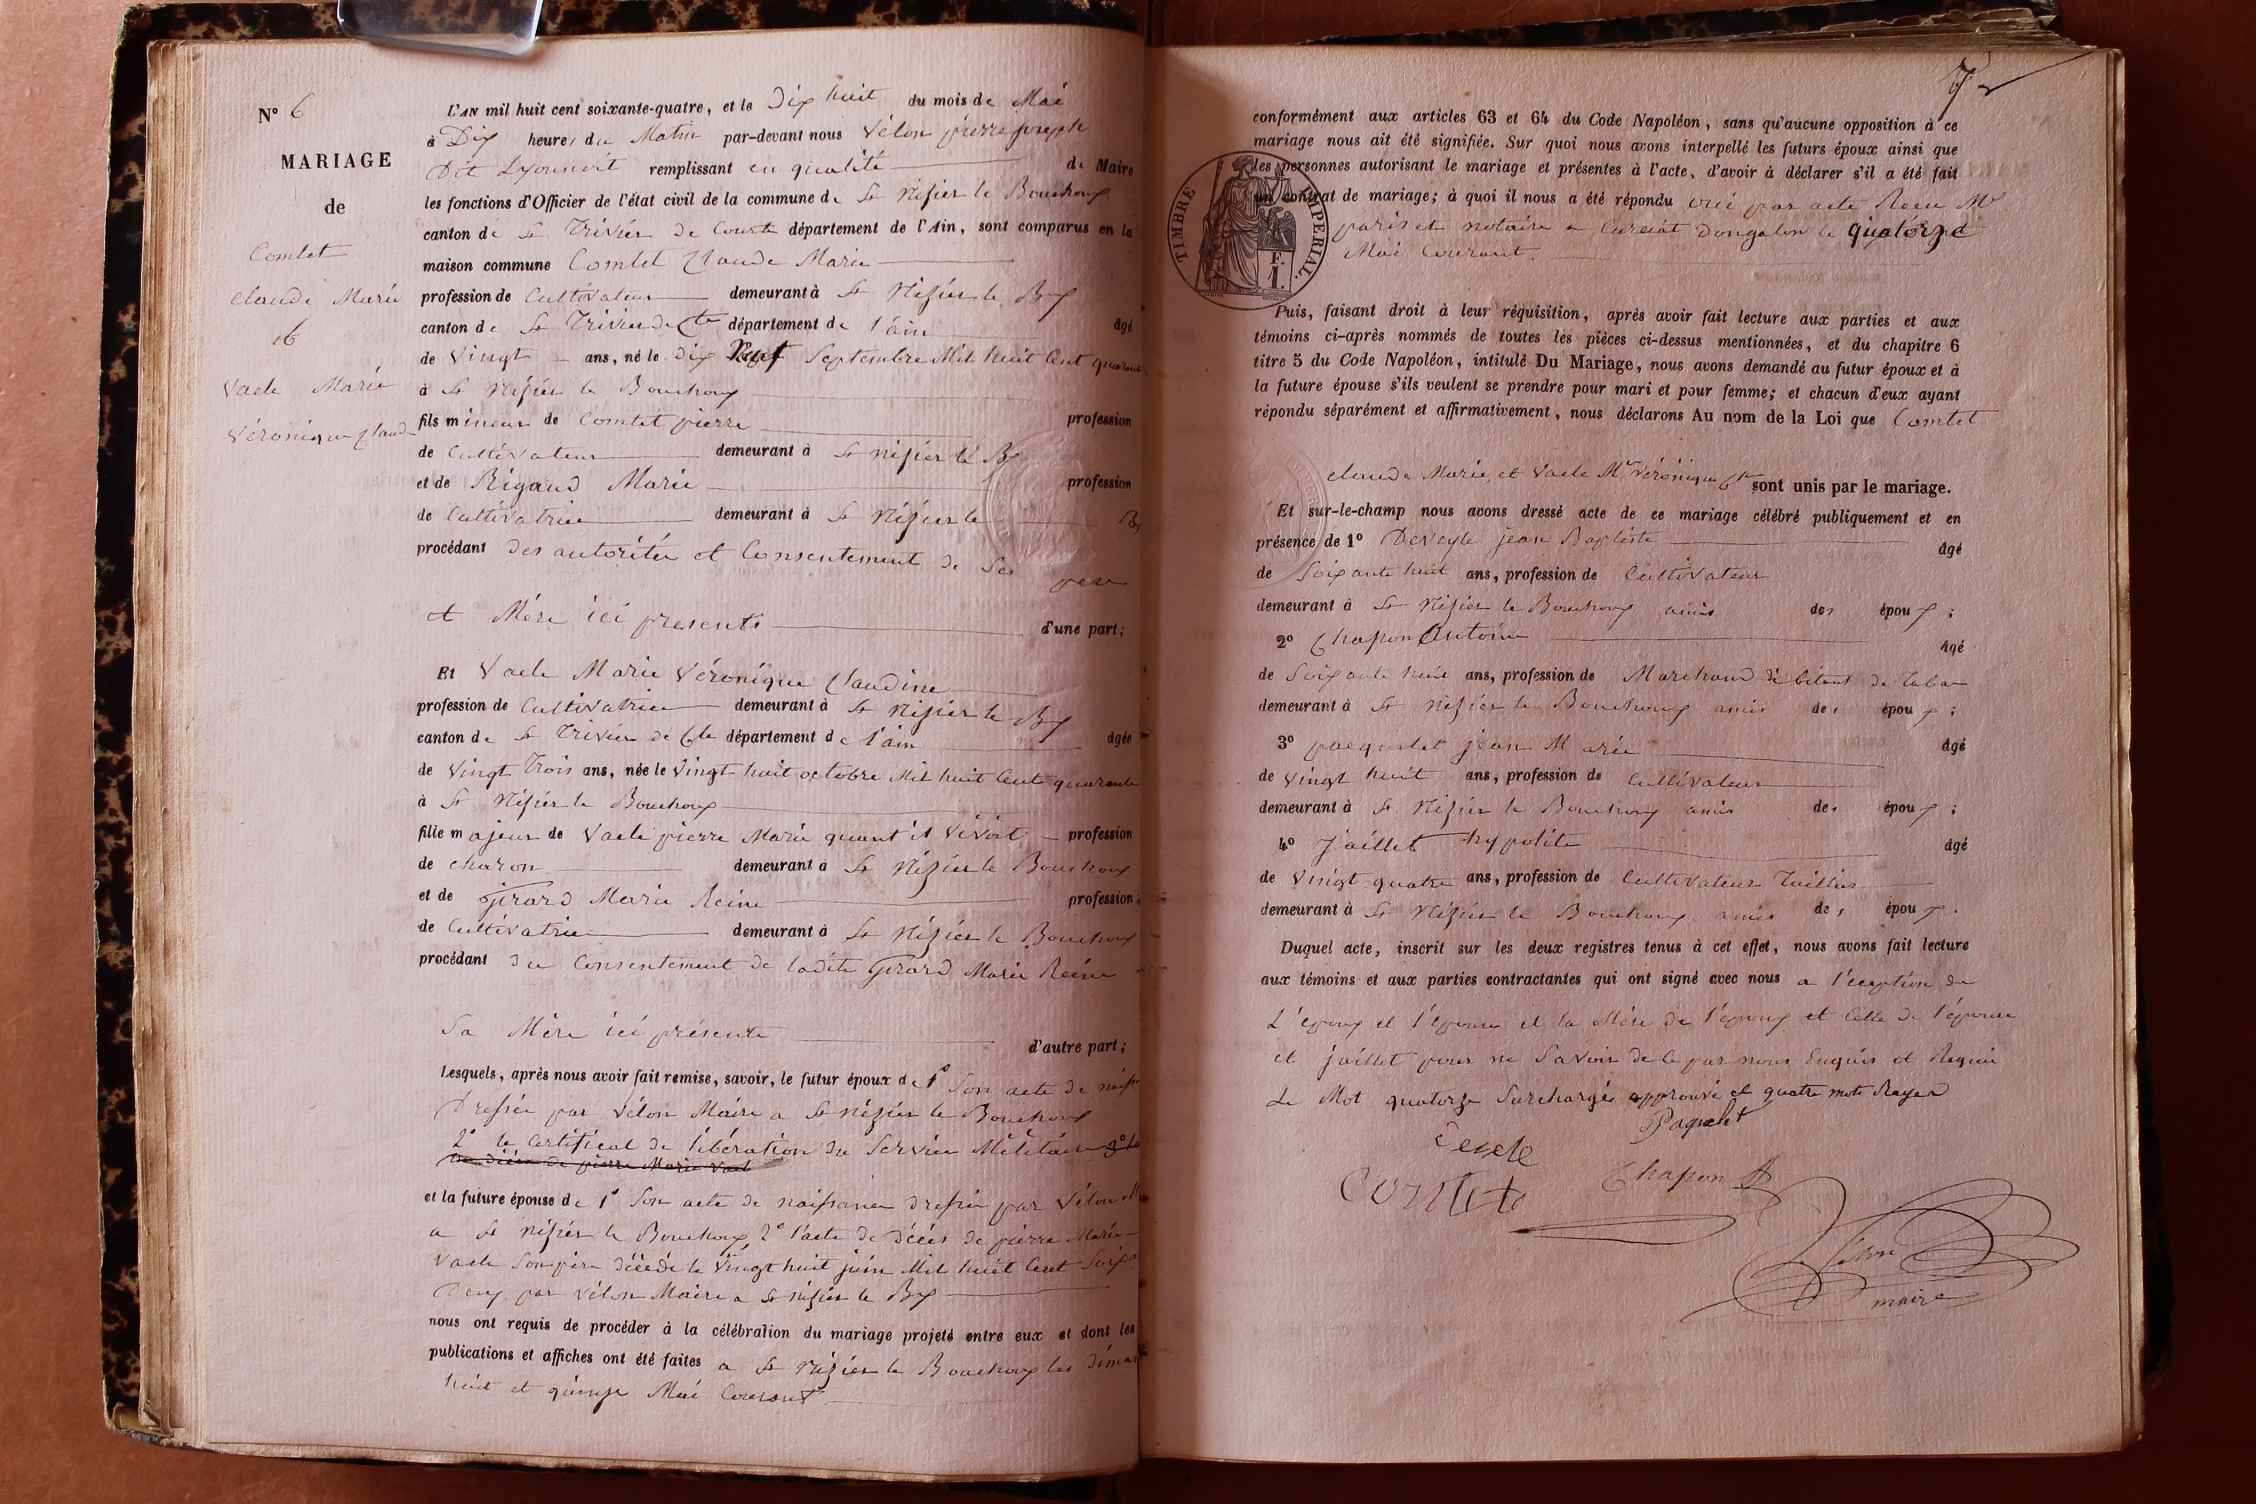 N° 6
MARIAGE
de
Comtet
Claude Marie
et
Vacle Marie
Véronique Claud
L'AN mil huit cent soixante-quatre, et le Dix huit du mois de Mai
à Dix heures du Matin par-devant nous Vélon pierre joseph
Dit Lyonnoit remplissant en qualité de Maire
les fonctions d'Officier de l'état civil de la commune de St Nizier le Bouchoux
canton de St Trivier de Courte département de l'Ain, sont comparus en la
maison commune Comtet Claude Marie
profession de Cultivateur demeurant à St Nizier le Bx
canton de St Trivier de Cte département de l'ain âgé
de Vingt ans, né le Dix Sept Septembre Mil huit Cent quarante
à St Nizier le Bouchoux
fils mineur de Comtet pierre profession
de Cultivateur demeurant à St nizier le Bx
et de Rigaud Marie profession
de Cultivatrice demeurant à St Nizier le Bx
procédant des autorités et Consentement de Ses pere
et Mère ici presents d'une part;
Et Vacle Marie Véronique Claudine
profession de Cultivatrice demeurant à St Nizier le Bx
canton de St Trivier de Cte département de l'ain âgée
de Vingt Trois ans, née le Vingt huit octobre Mil huit Cent quarante
à St Nizier le Bouchoux
fille majeure de Vacle pierre Marie quant il vivoit profession
de charon demeurant à St Nizier le Bouchoux
et de Girard Marie Reine profession
de Cultivatrice demeurant à St Nizier le Bouchoux
procédant du Consentement de ladite Girard Marie Reine
Sa Mère ici présente d'autre part;
Lesquels, après nous avoir fait remise, savoir, le futur époux de 1° Son acte de naiss
Dressée par Vélon Maire a St nizier le Bouchoux
2° le Certificat de libération du Service Militaire 3° le
de pierre Marie Vacle
et la future épouse de 1° Son acte de naissance dressée par Vélon M
a St Nizier le Bouchoux 2° l'acte de décés de pierre Marie
Vacle Son père décédé le Vingt huit juin Mil huit Cent Soixte
Deux par Vélon Maire a St nizier le Bx
nous ont requis de procéder à la célébration du mariage projeté entre eux et dont les
publications et affiches ont été faites a St Nizier le Bouchoux les diman
huit et quinze Mai Courant
7
conformément aux articles 63 et 64 du Code Napoléon, sans qu'aucune opposition à ce
mariage nous ait été signifiée. Sur quoi nous avons interpellé les futurs époux ainsi que
les personnes autorisant le mariage et présentes à l'acte, d'avoir à déclarer s'il a été fait
un contrat de mariage; à quoi il nous a été répondu oui par acte Recu Me
pariset notaire a Curciat Dongalon le quatorze
Mai Courant.
TIMBRE IMPERIAL.
1 F.
Puis, faisant droit à leur réquisition, après avoir fait lecture aux parties et aux
témoins ci-après nommés de toutes les pièces ci-dessus mentionnées, et du chapitre 6
titre 5 du Code Napoléon, intitulé Du Mariage, nous avons demandé au futur époux et à
la future épouse s'ils veulent se prendre pour mari et pour femme; et chacun d'eux ayant
répondu séparément et affirmativement, nous déclarons Au nom de la Loi que Comtet
Claude Marie et Vacle Mie Véronique Cde sont unis par le mariage.
Et sur-le-champ nous avons dressé acte de ce mariage célébré publiquement et en
présence de 1° Deveyle jean Baptiste âgé
de Soixante huit ans, profession de Cultivateur
demeurant à St Nizier le Bouchoux amis des époux;
2° Chapon Antoine âgé
de Soixante huit ans, profession de Marchand débitant de Taba
demeurant à St Nizier le Bouchoux amis des époux;
3° pacquelet jean Marie âgé
de vingt huit ans, profession de Cultivateur
demeurant à St Nizier le Bouchoux amis des époux;
4° Jaillet hypolite âgé
de Vingt quatre ans, profession de Cultivateur Taillieur
demeurant à St Nizier le Bouchoux amis des époux.
Duquel acte, inscrit sur les deux registres tenus à cet effet, nous avons fait lecture
aux témoins et aux parties contractantes qui ont signé avec nous a l'éception de
L'époux et l'épouse et la Mère de l'époux et Celle de l'épouse
et jaillet pour ne Savoir de ce par nous Enquis et Requis
Le Mot quatorze Surchargé approuvé et quatre mots Rayer
Paquelet
comtet
Chapon A
Vélon
maire